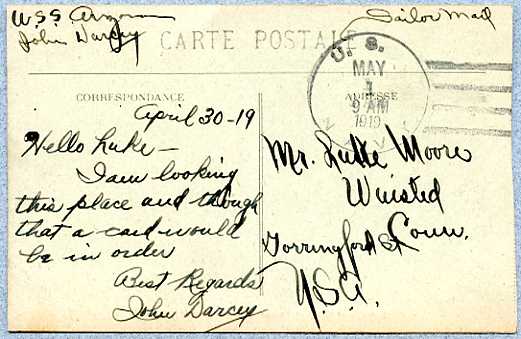 U.S.S. Argonne
John Darcey
Sailor Mail
CARTE POSTALE
U. S.
MAY
1
9 AM
1919
NAVY
CORRESPONDANCE
ADRESSE
April 30-19
Hello Luke -
I am looking
this place and though
that a card would
be in order
Best Regards
John Darcey
Mr. Luke Moore
Winsted
Torringford St Conn.
U.S.A.